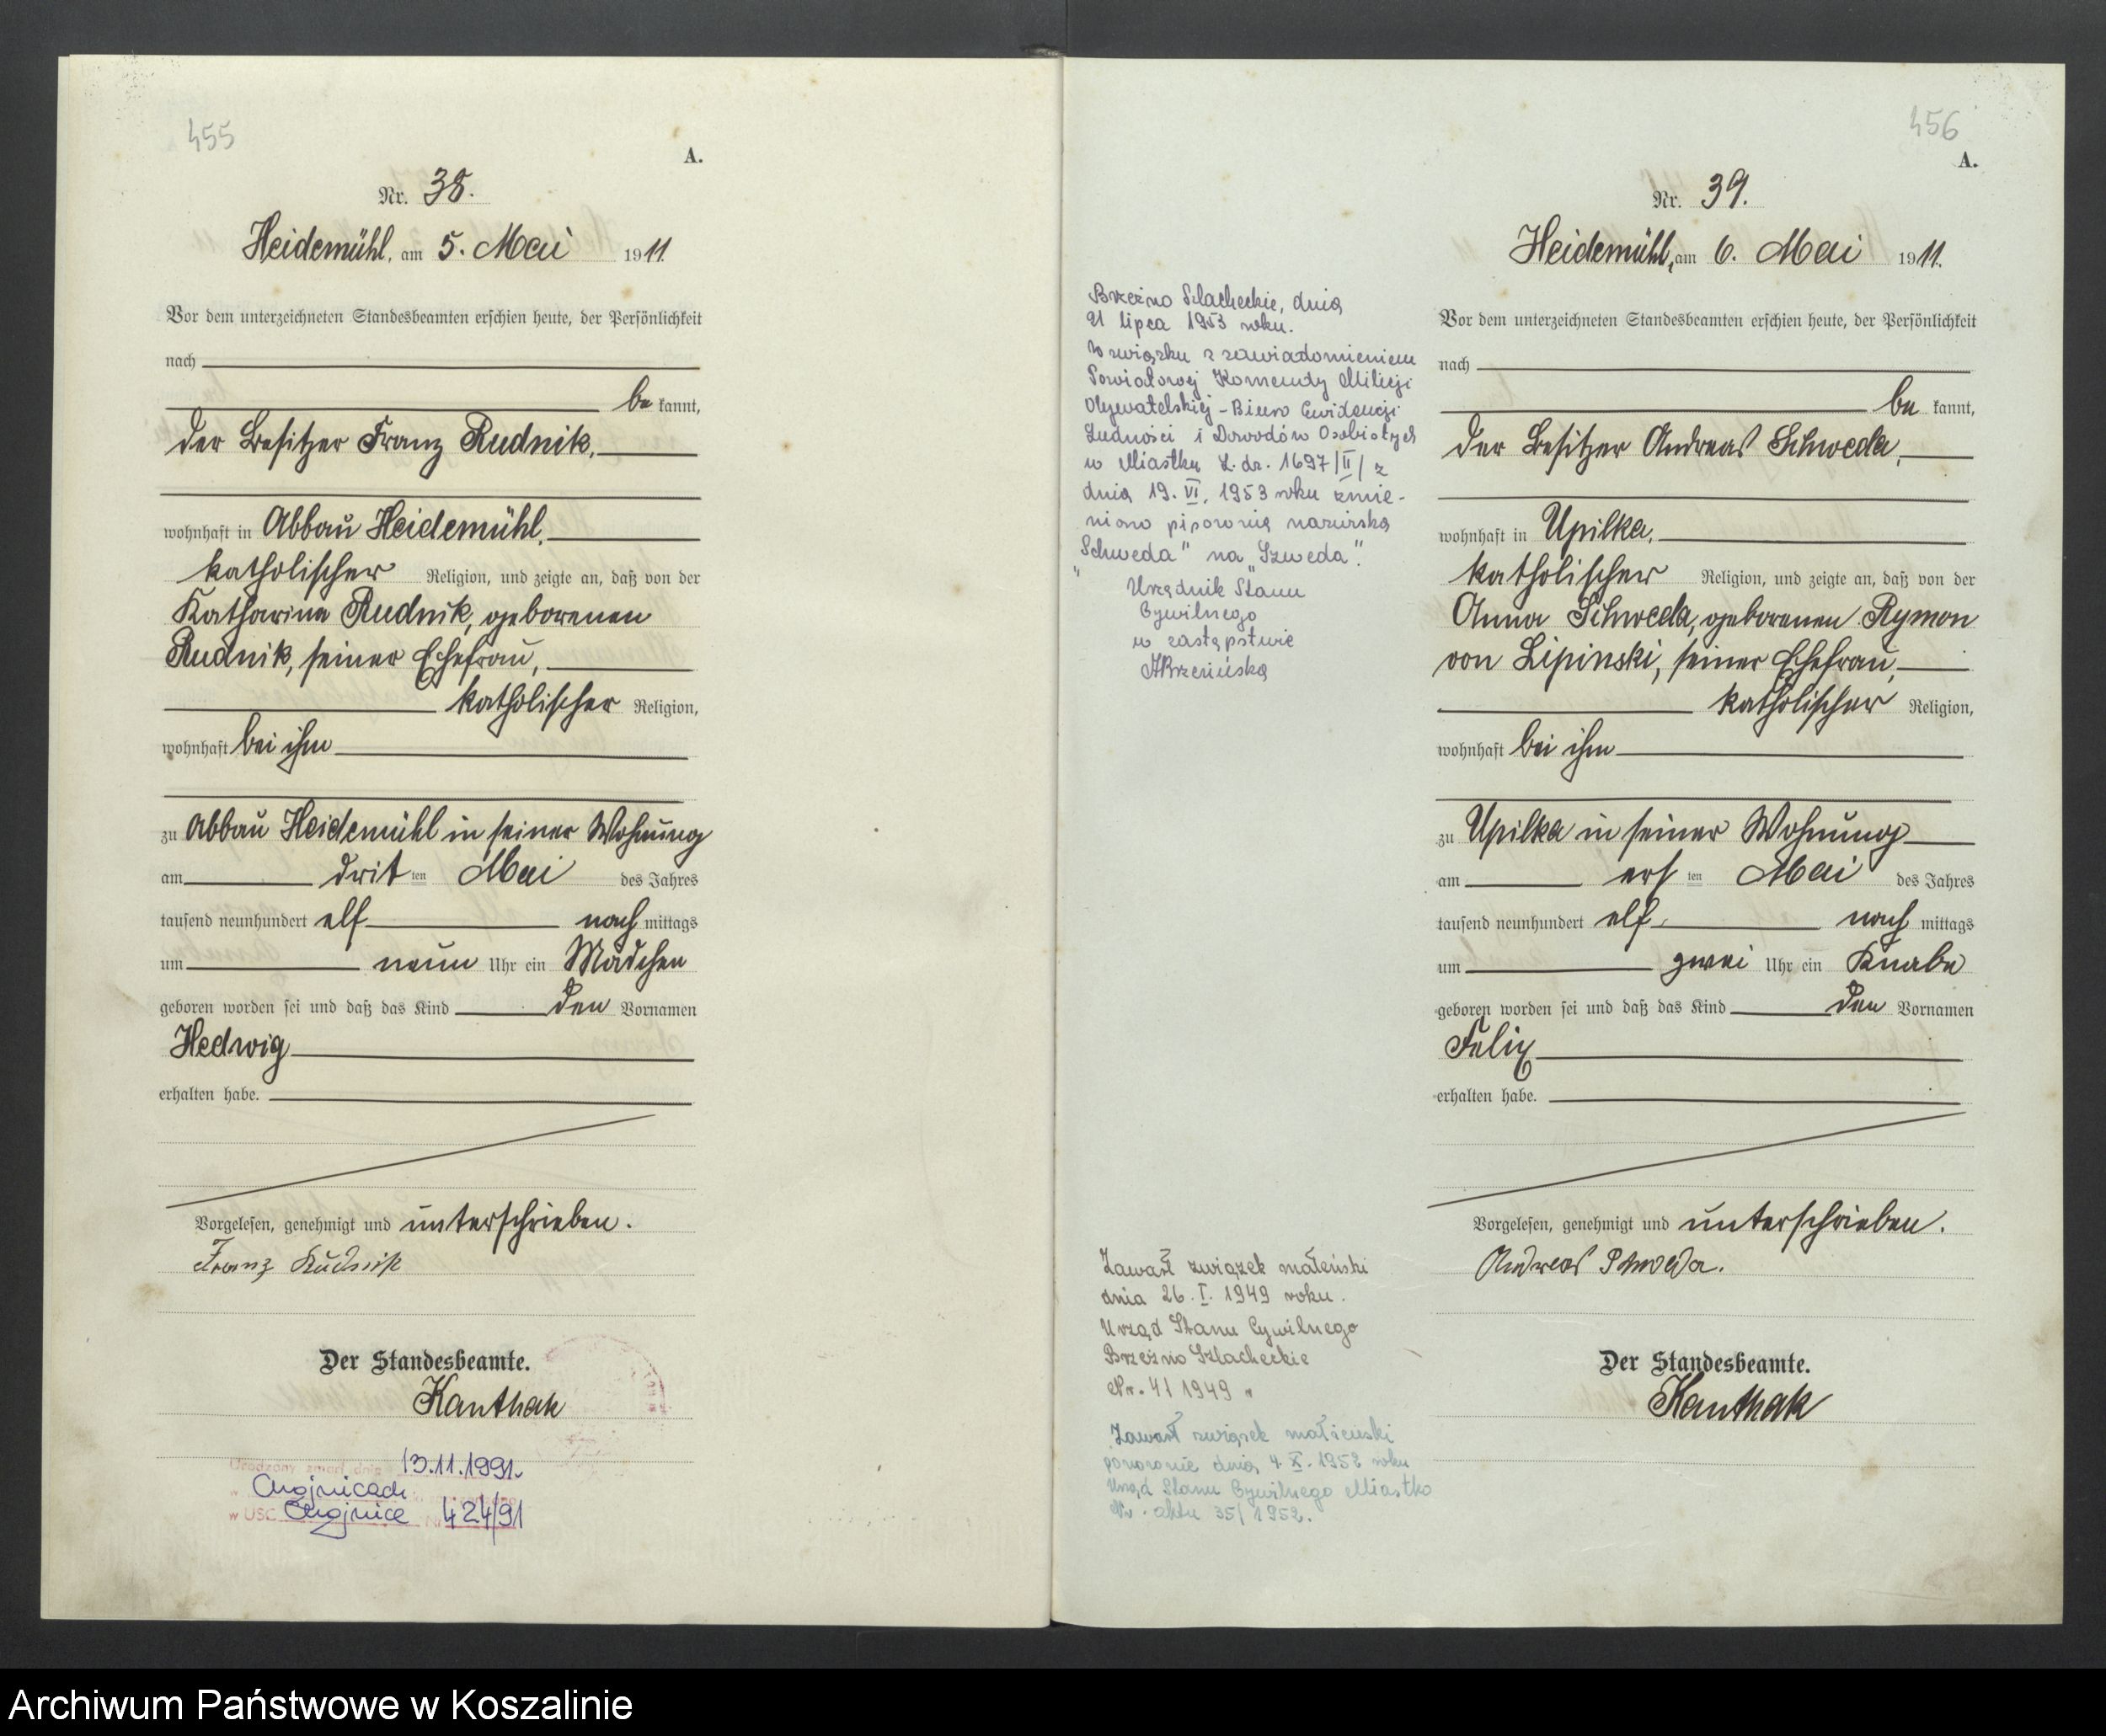 455
A.
Nr. 38.
Heidemühl, am 5. Mai 1911.
Vor dem unterzeichneten Standesbeamten erschien heute, der Persönlichkeit
nach
be kannt,
der Besitzer Franz Rudnik,
wohnhaft in Abbau Heidemühl,
katholischer Religion, und zeigte an, daß von der
Katharina Rudnik, geborenen
Rudnik, seiner Ehefrau,
katholischer Religion,
wohnhaft bei ihm
zu Abbau Heidemühl in seiner Wohnung
am drit ten Mai des Jahres
tausend neunhundert elf nach mittags
um neun Uhr ein Mädchen
geboren worden sei und daß das Kind den Vornamen
Hedwig
erhalten habe.
Vorgelesen, genehmigt und unterschrieben.
Franz Rudnik
Der Standesbeamte.
Kanthak
13.11.1991.
w Chojnicach
w USC Chojnice Nr 424/91
456
A.
Nr. 39.
Heidemühl, am 6. Mai 1911.
Vor dem unterzeichneten Standesbeamten erschien heute, der Persönlichkeit
nach
be kannt,
der Besitzer Andreas Schweda,
wohnhaft in Upilka,
katholischer Religion, und zeigte an, daß von der
Anna Schweda, geborenen Rymon
von Lipinski, seiner Ehefrau,
katholischer Religion,
wohnhaft bei ihm
zu Upilka in seiner Wohnung
am ers ten Mai des Jahres
tausend neunhundert elf, nach mittags
um zwei Uhr ein Knabe
geboren worden sei und daß das Kind den Vornamen
Felix
erhalten habe.
Vorgelesen, genehmigt und unterschrieben.
Andreas Schweda.
Der Standesbeamte.
Kanthak
Brzeźno Szlacheckie, dnia
21 lipca 1953 roku.
W związku z zawiadomieniem
Powiatowej Komendy Milicji
Obywatelskiej - Biuro Ewidencji
Ludności i Dowodów Osobistych
w Miastku L.dz. 1697/II/ z
dnia 19. VI. 1953 roku zmie-
niono pisownię nazwiska
"Schweda" na "Szweda".
Urzędnik Stanu
Cywilnego
w zastępstwie
Zawarł związek małeński
dnia 26. I. 1949 roku.
Urząd Stanu Cywilnego
Brzeźno Szlacheckie
Nr. 4/1949
Zawarł związek małżeński
ponownie dnia 4. X. 1952 roku
Urząd Stanu Cywilnego Miastko
Nr. aktu 35/1952.
Archiwum Państwowe w Koszalinie